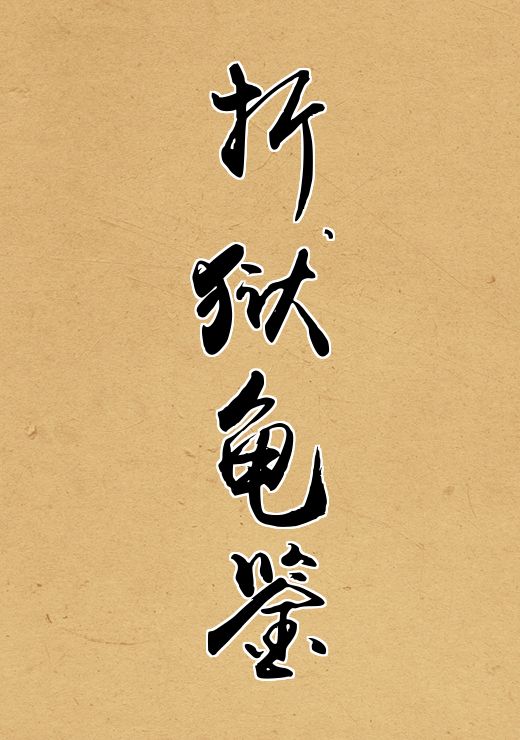 折狱龟鉴